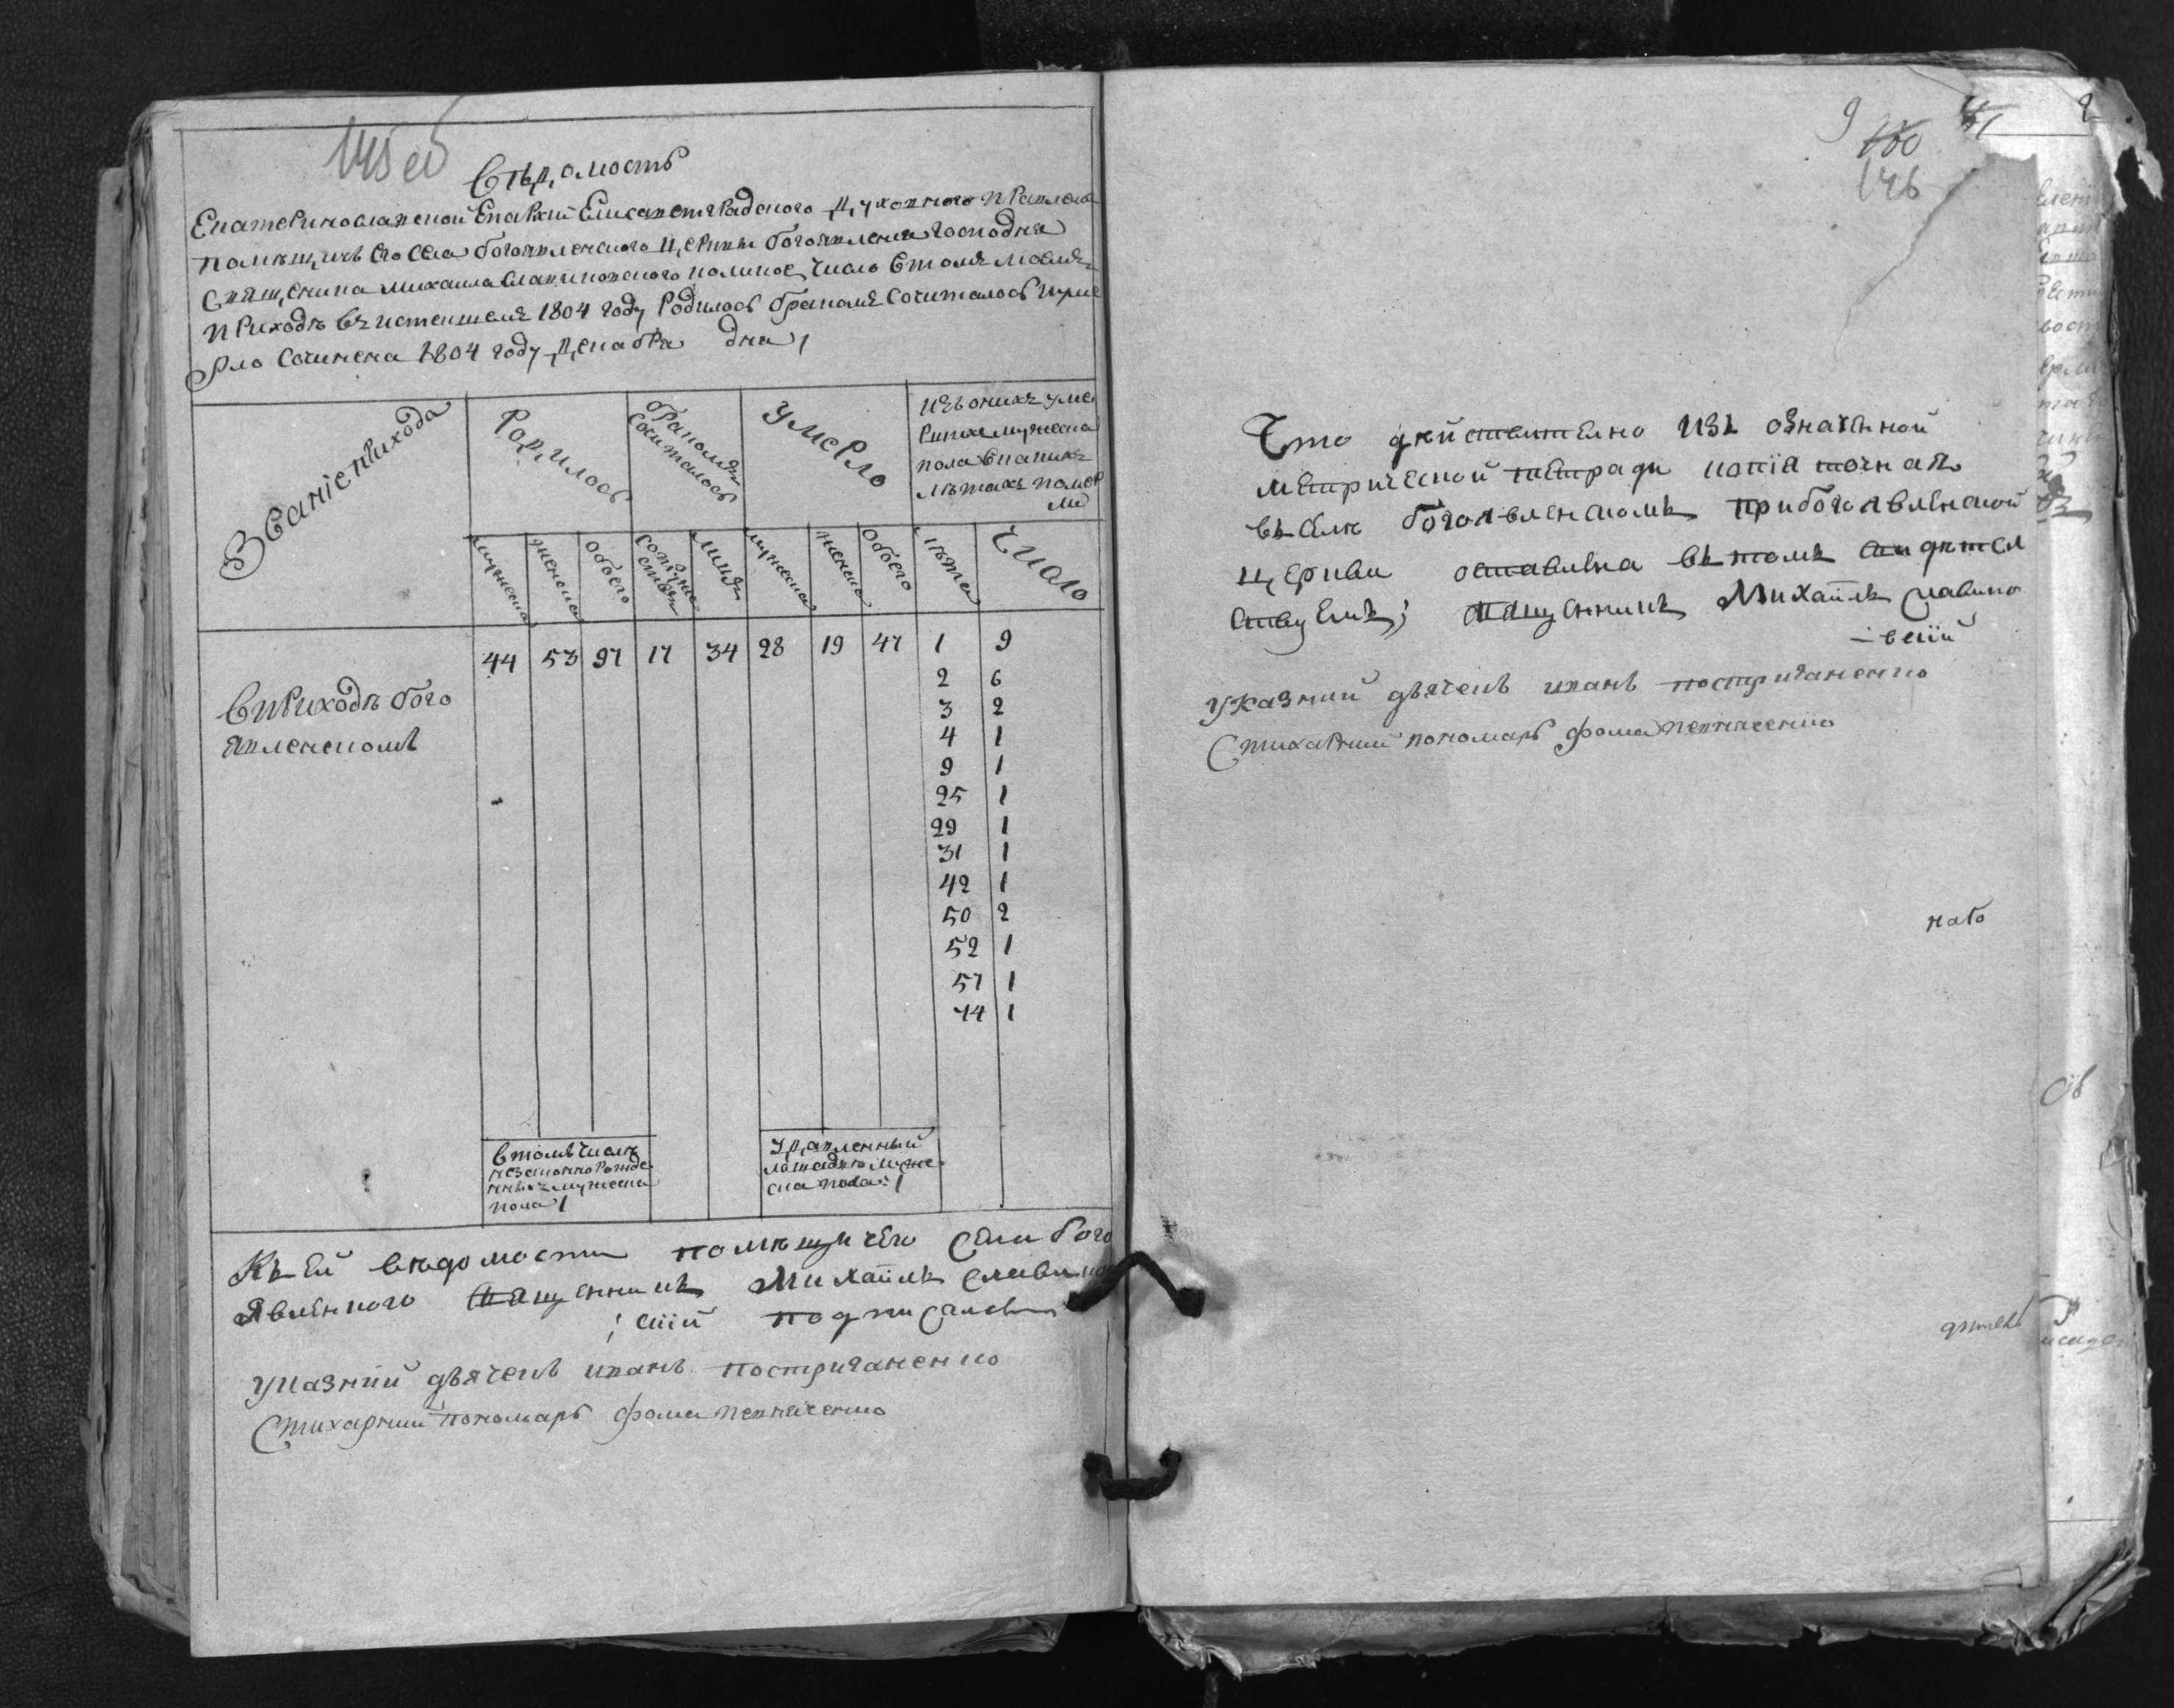 145 об
Вѣдомость
Екатеринославской Епархии Елисаветградского духовного правления
помѣщичьего села богоявленского церкви богоявления Господня
священика михаила славинского коликое число втомъ моемъ
приходѣ въ истекшемъ 1804 году родилось бракомъ сочиталось и уме
рло сочинена 1804 году декабря дня
Звание прихода
Родилось
Бракомъ сочиталось
Умерло
изъ онихъ уме
рших мужеска
пола в каких
лѣтахъ помер
ли
мужеска
женска
обоего
супруже
ствъ
лицъ
мужеска
женска
обоего
лѣта
число
В приходѣ бого
явленскомъ
44 53 97 17 34 28 19 47 1 9
2 6
3 2
4 1
9 1
25 1
29 1
31 1
42 1
50 2
52 1
57 1
74 1
в томъ числѣ
незаконно рожде
нных мужеска
пола 1
удавленный
лошадью муже
ска пола: 1
Къ ей вѣдомости помѣщичего села бого
явленского священникъ Михаилъ славин
скій подписался
указний дьячекъ иванъ постриганенко
Стихарний пономарь фома
9 180
146
Что дѣйствително изъ означеной
метрической тетради копія точная
въ селѣ богоявленскомъ при богоявленской
церкви оставлена въ томъ свидѣтел
ствуемъ; священникъ Михаилъ славин
–скій
указний дьячекъ иванъ постриганенко
Стихарний пономарь фома